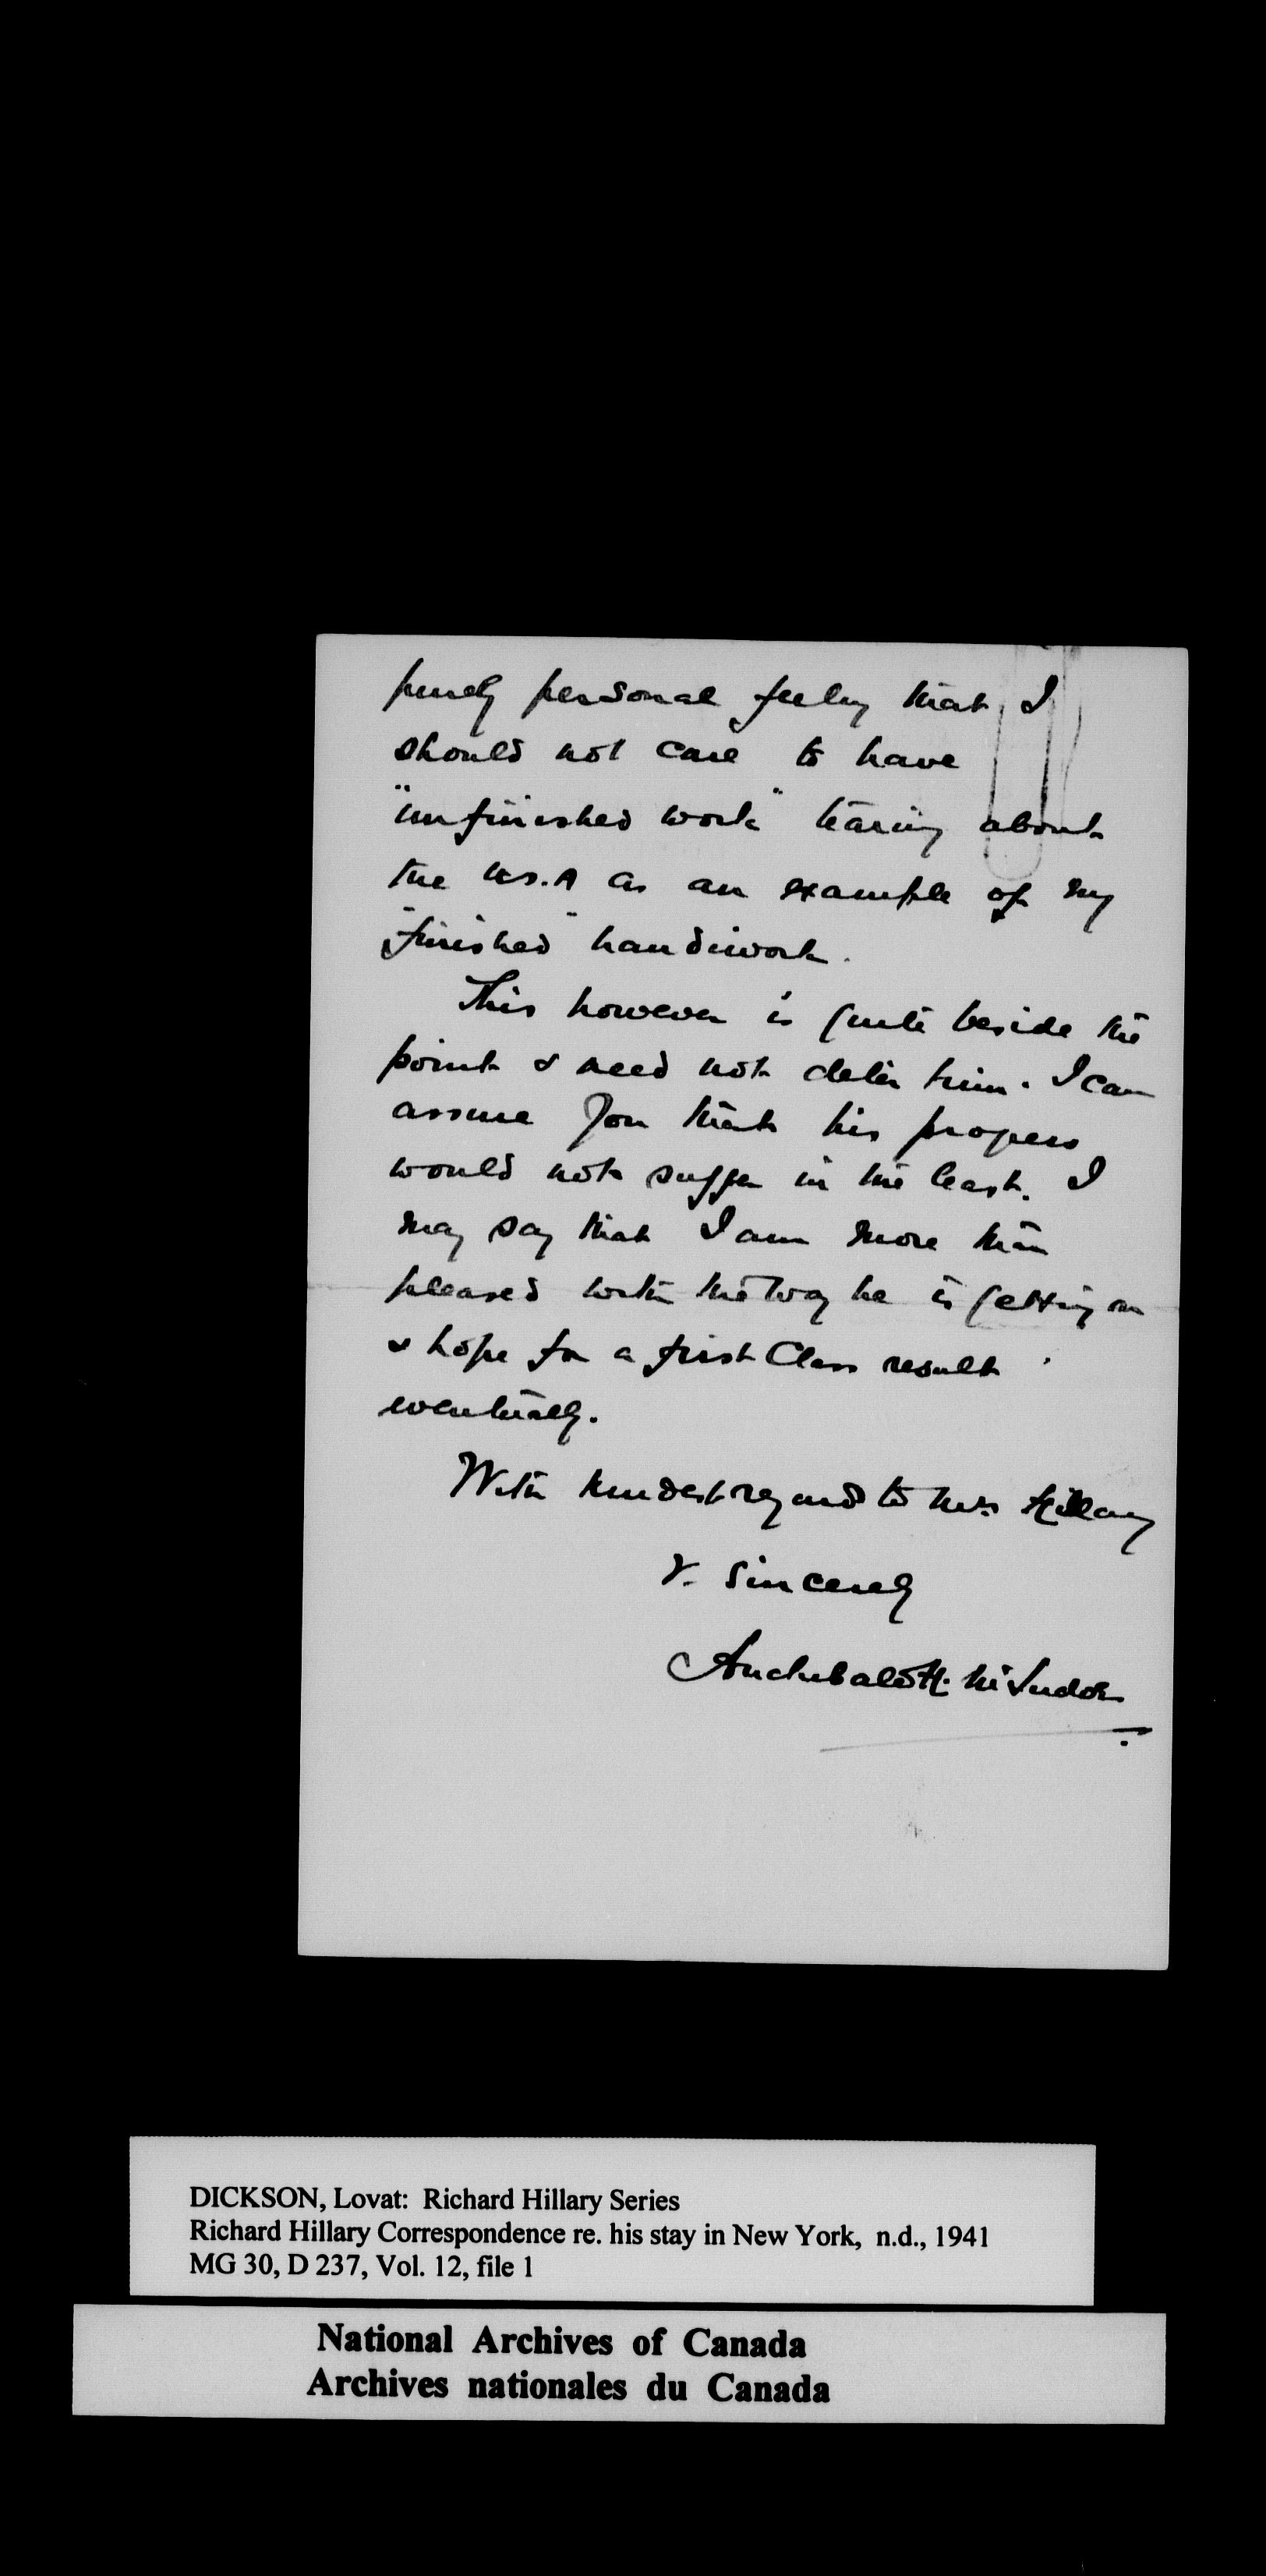 purely personal feeling that I
should not care to have
"unfinished work" tearing about
the U.S.A as an example of my
"finished" handiwork.
This however is quite beside the
point & need not deter him. I can
assure you that his progress
would not suffer in the least. I
may say that I am more than
pleased with the way he is getting on
& hope for a first Class result
eventually.
With kindest regards to Mrs Hillary
Y. Sincerely
Archibald H. McIndoe
DICKSON, Lovat: Richard Hillary Series
Richard Hillary Correspondence re. his stay in New York, n.d., 1941
MG 30, D 237, Vol. 12, file 1
National Archives of Canada
Archives nationales du Canada